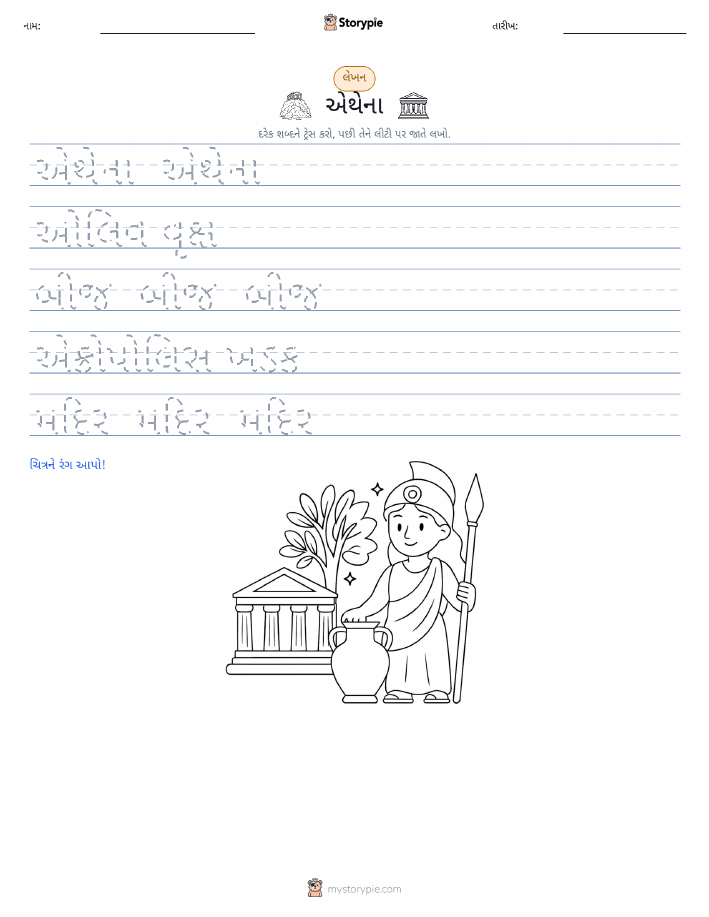 નામ:
Storypie
તારીખ:
લેખન
એથેના
દરેક શબ્દને ટ્રેસ કરો, પછી તેને લીટી પર જાતે લખો.
એથેના એથેના
ઓલિવ વૃક્ષ
બીજ બીજ બીજ
એક્રોપોલિસ ખડક
મંદિર મંદિર મંદિર
ચિત્રને રંગ આપો!
mystorypie.com